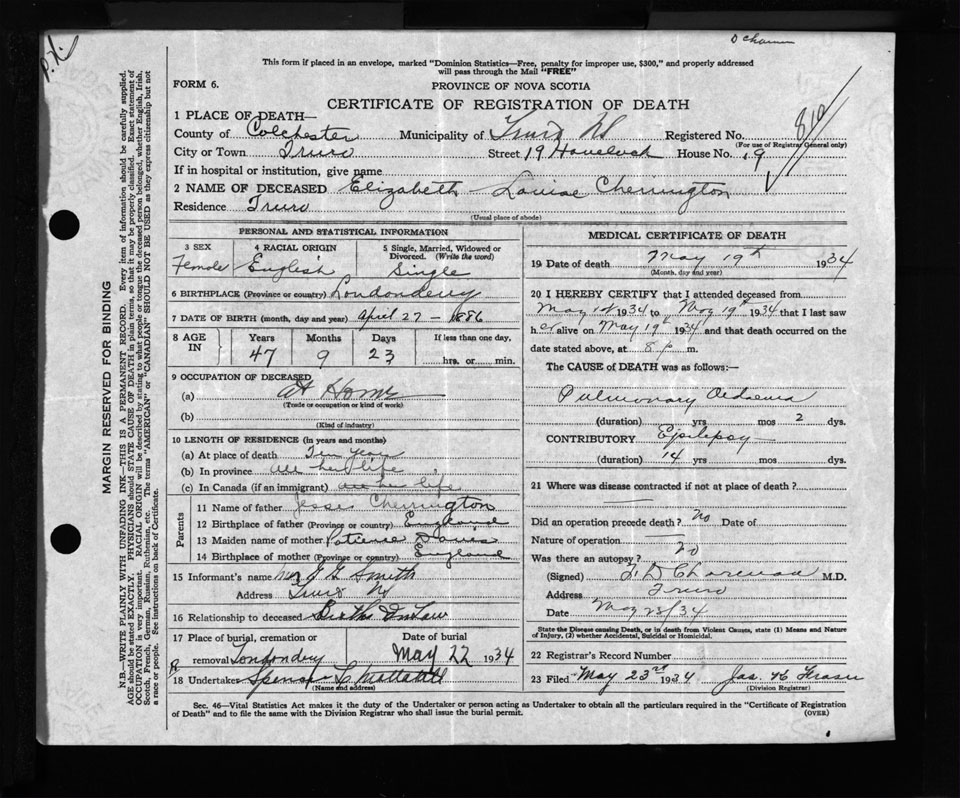 This form if placed in an envelope, marked "Dominion Statistics—Free, penalty for improper use, $300," and properly addressed
will pass through the Mail "FREE"
FORM 6.
PROVINCE OF NOVA SCOTIA
CERTIFICATE OF REGISTRATION OF DEATH
810
1 PLACE OF DEATH—
County of Colchester Municipality of Truro NS Registered No.
(For use of Registrar General only)
City or Town Truro Street 19 Havelock House No. 19
If in hospital or institution, give name
2 NAME OF DECEASED Elizabeth Louise Cherrington
Residence Truro
(Usual place of abode)
PERSONAL AND STATISTICAL INFORMATION
3 SEX
Female
4 RACIAL ORIGIN
English
5 Single, Married, Widowed or Divorced. (Write the word)
Single
6 BIRTHPLACE (Province or country) Londonderry
7 DATE OF BIRTH (month, day and year) April 27 - 1886
8 AGE IN
Years Months Days If less than one day,
47 9 23 hrs. or min.
9 OCCUPATION OF DECEASED
(a) At Home
(Trade or occupation or kind of work)
(b)
(Kind of industry)
10 LENGTH OF RESIDENCE (in years and months)
(a) At place of death Ten years
(b) In province all her life
(c) In Canada (if an immigrant) all her life
Parents
11 Name of father Jesse Cherrington
12 Birthplace of father (Province or country) England
13 Maiden name of mother Patience Davis
14 Birthplace of mother (Province or country) England
15 Informant's name Mr J G Smith
Address Truro NS
16 Relationship to deceased In Law
17 Place of burial, cremation or Date of burial
removal Londonderry May 22 1934
18 Undertaker Spencer
(Name and address)
MEDICAL CERTIFICATE OF DEATH
19 Date of death May 19th 1934
(Month, day and year)
20 I HEREBY CERTIFY that I attended deceased from
May 1st 1934 to May 19th 1934 that I last saw
her alive on May 19th 1934 and that death occurred on
date stated above, at 8 p m.
The CAUSE of DEATH was as follows:—
Pulmonary Oedaema
(duration) yrs mos 2 dys.
CONTRIBUTORY Epilepsy
(duration) 14 yrs mos dys.
21 Where was disease contracted if not at place of death?
Did an operation precede death? No Date of
Nature of operation
Was there an autopsy? No
(Signed) M.D.
Address Truro
Date May 23/34
State the Disease causing Death, or in death from Violent Causes, state (1) Means and
Nature of Injury, (2) whether Accidental, Suicidal or Homicidal.
22 Registrar's Record Number
23 Filed May 23rd 1934 Jas. K Fraser
(Division Registrar)
Sec. 46—Vital Statistics Act makes it duty of the Undertaker or person acting as Undertaker to obtain all the particulars required in the "Certificate of Registration
of Death" and to file the same with the Division Registrar who shall issue the burial permit.
(OVER)
MARGIN RESERVED FOR BINDING
N.B.—WRITE PLAINLY WITH UNFADING INK—THIS IS A PERMANENT RECORD. Every item of information should be carefully supplied.
AGE should be stated EXACTLY. PHYSICIANS should STATE CAUSE OF DEATH in plain terms, so that it may be properly classified. Exact statement of
OCCUPATION is very important. RACIAL ORIGIN will be described by stating to what people or tongue the deceased person belonged, whether English, Irish,
Scotch, French, German, Russian, Ruthenian, etc. The terms "AMERICAN" or "CANADIAN" SHOULD NOT BE USED as they express citizenship but not
a race or people. See instructions on back of Certificate.